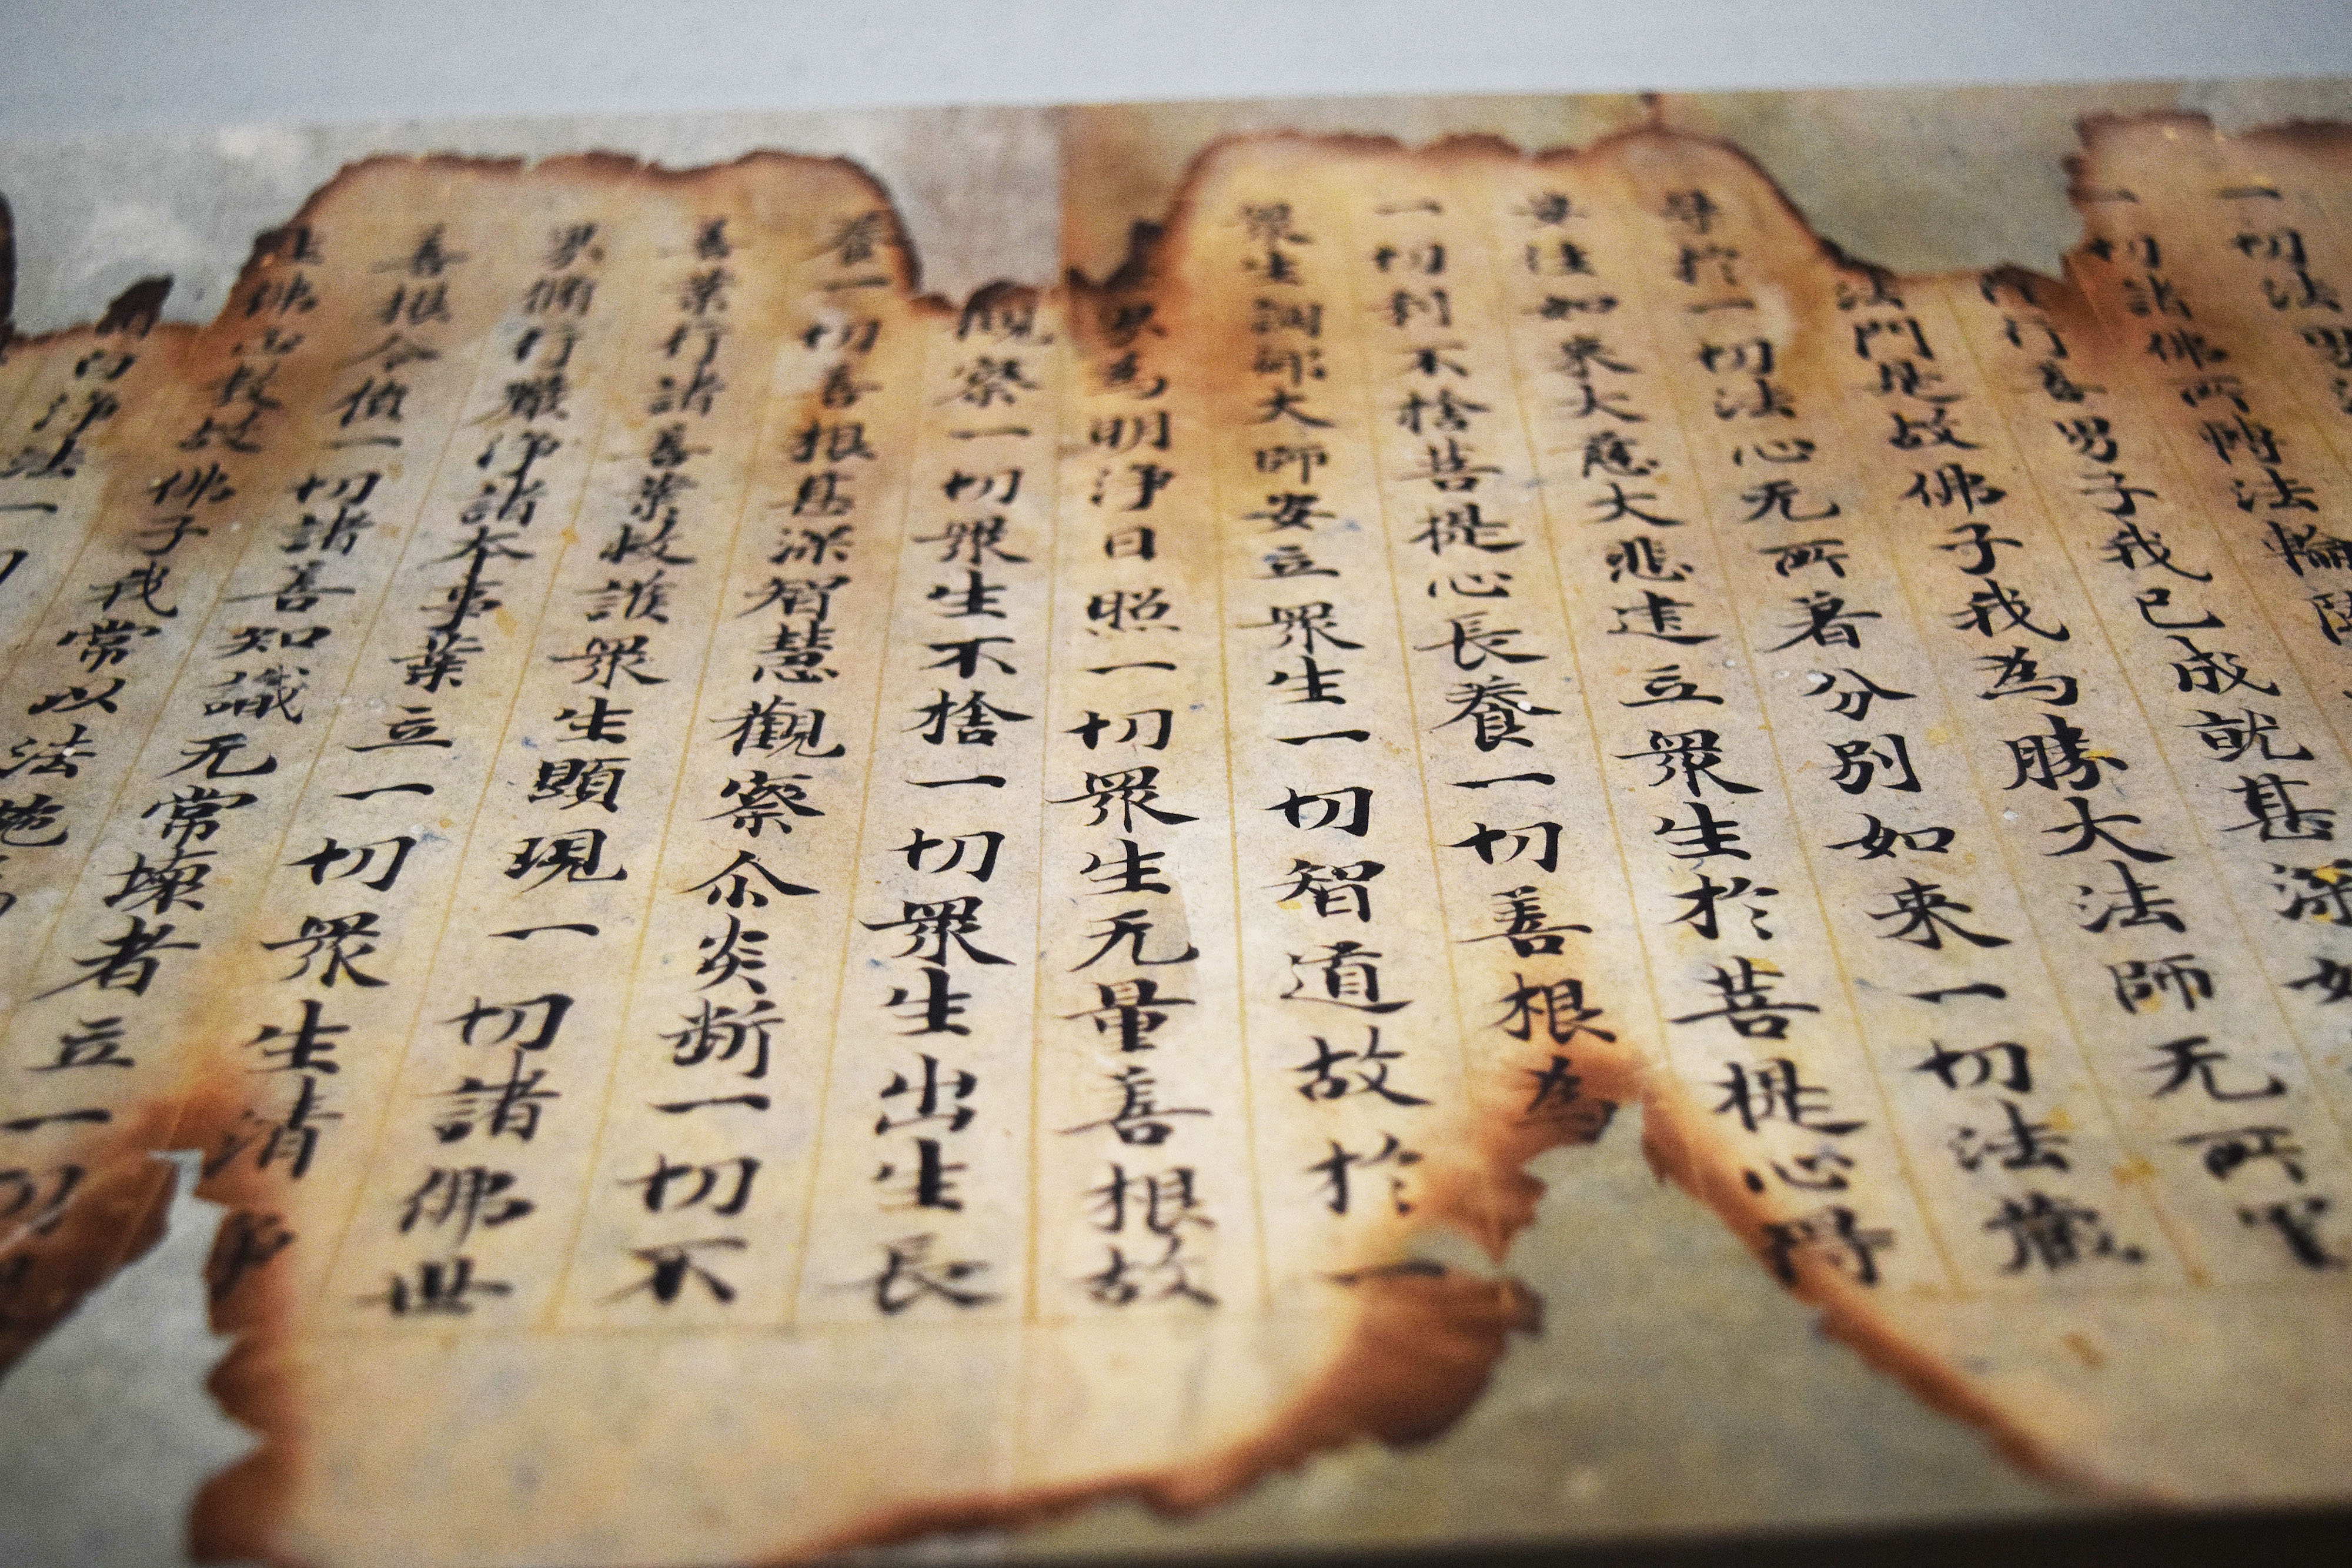 一切法
一切諸佛所轉法輪陀
行善男子我已成就甚深如
法門是故佛子我為勝大法師无所罣
导於一切法心无所著分別如来一切法藏
安住如来大慈大悲建立眾生於菩提心時
一切利不捨菩提心長養一切善根為
眾生調御大師安立眾生一切智道故於一
界為明淨日照一切眾生无量善根故
觀察一切眾生不捨一切眾生出生長
養一切善根甚深智慧觀察尒炎斷一切不
善業行諸善業救護眾生顯現一切諸佛世
界脩行嚴淨諸本事業立一切眾生清淨
善根令值一切諸善知識无常壞者立一切
佛出教故佛子我常以法施
白淨法一切